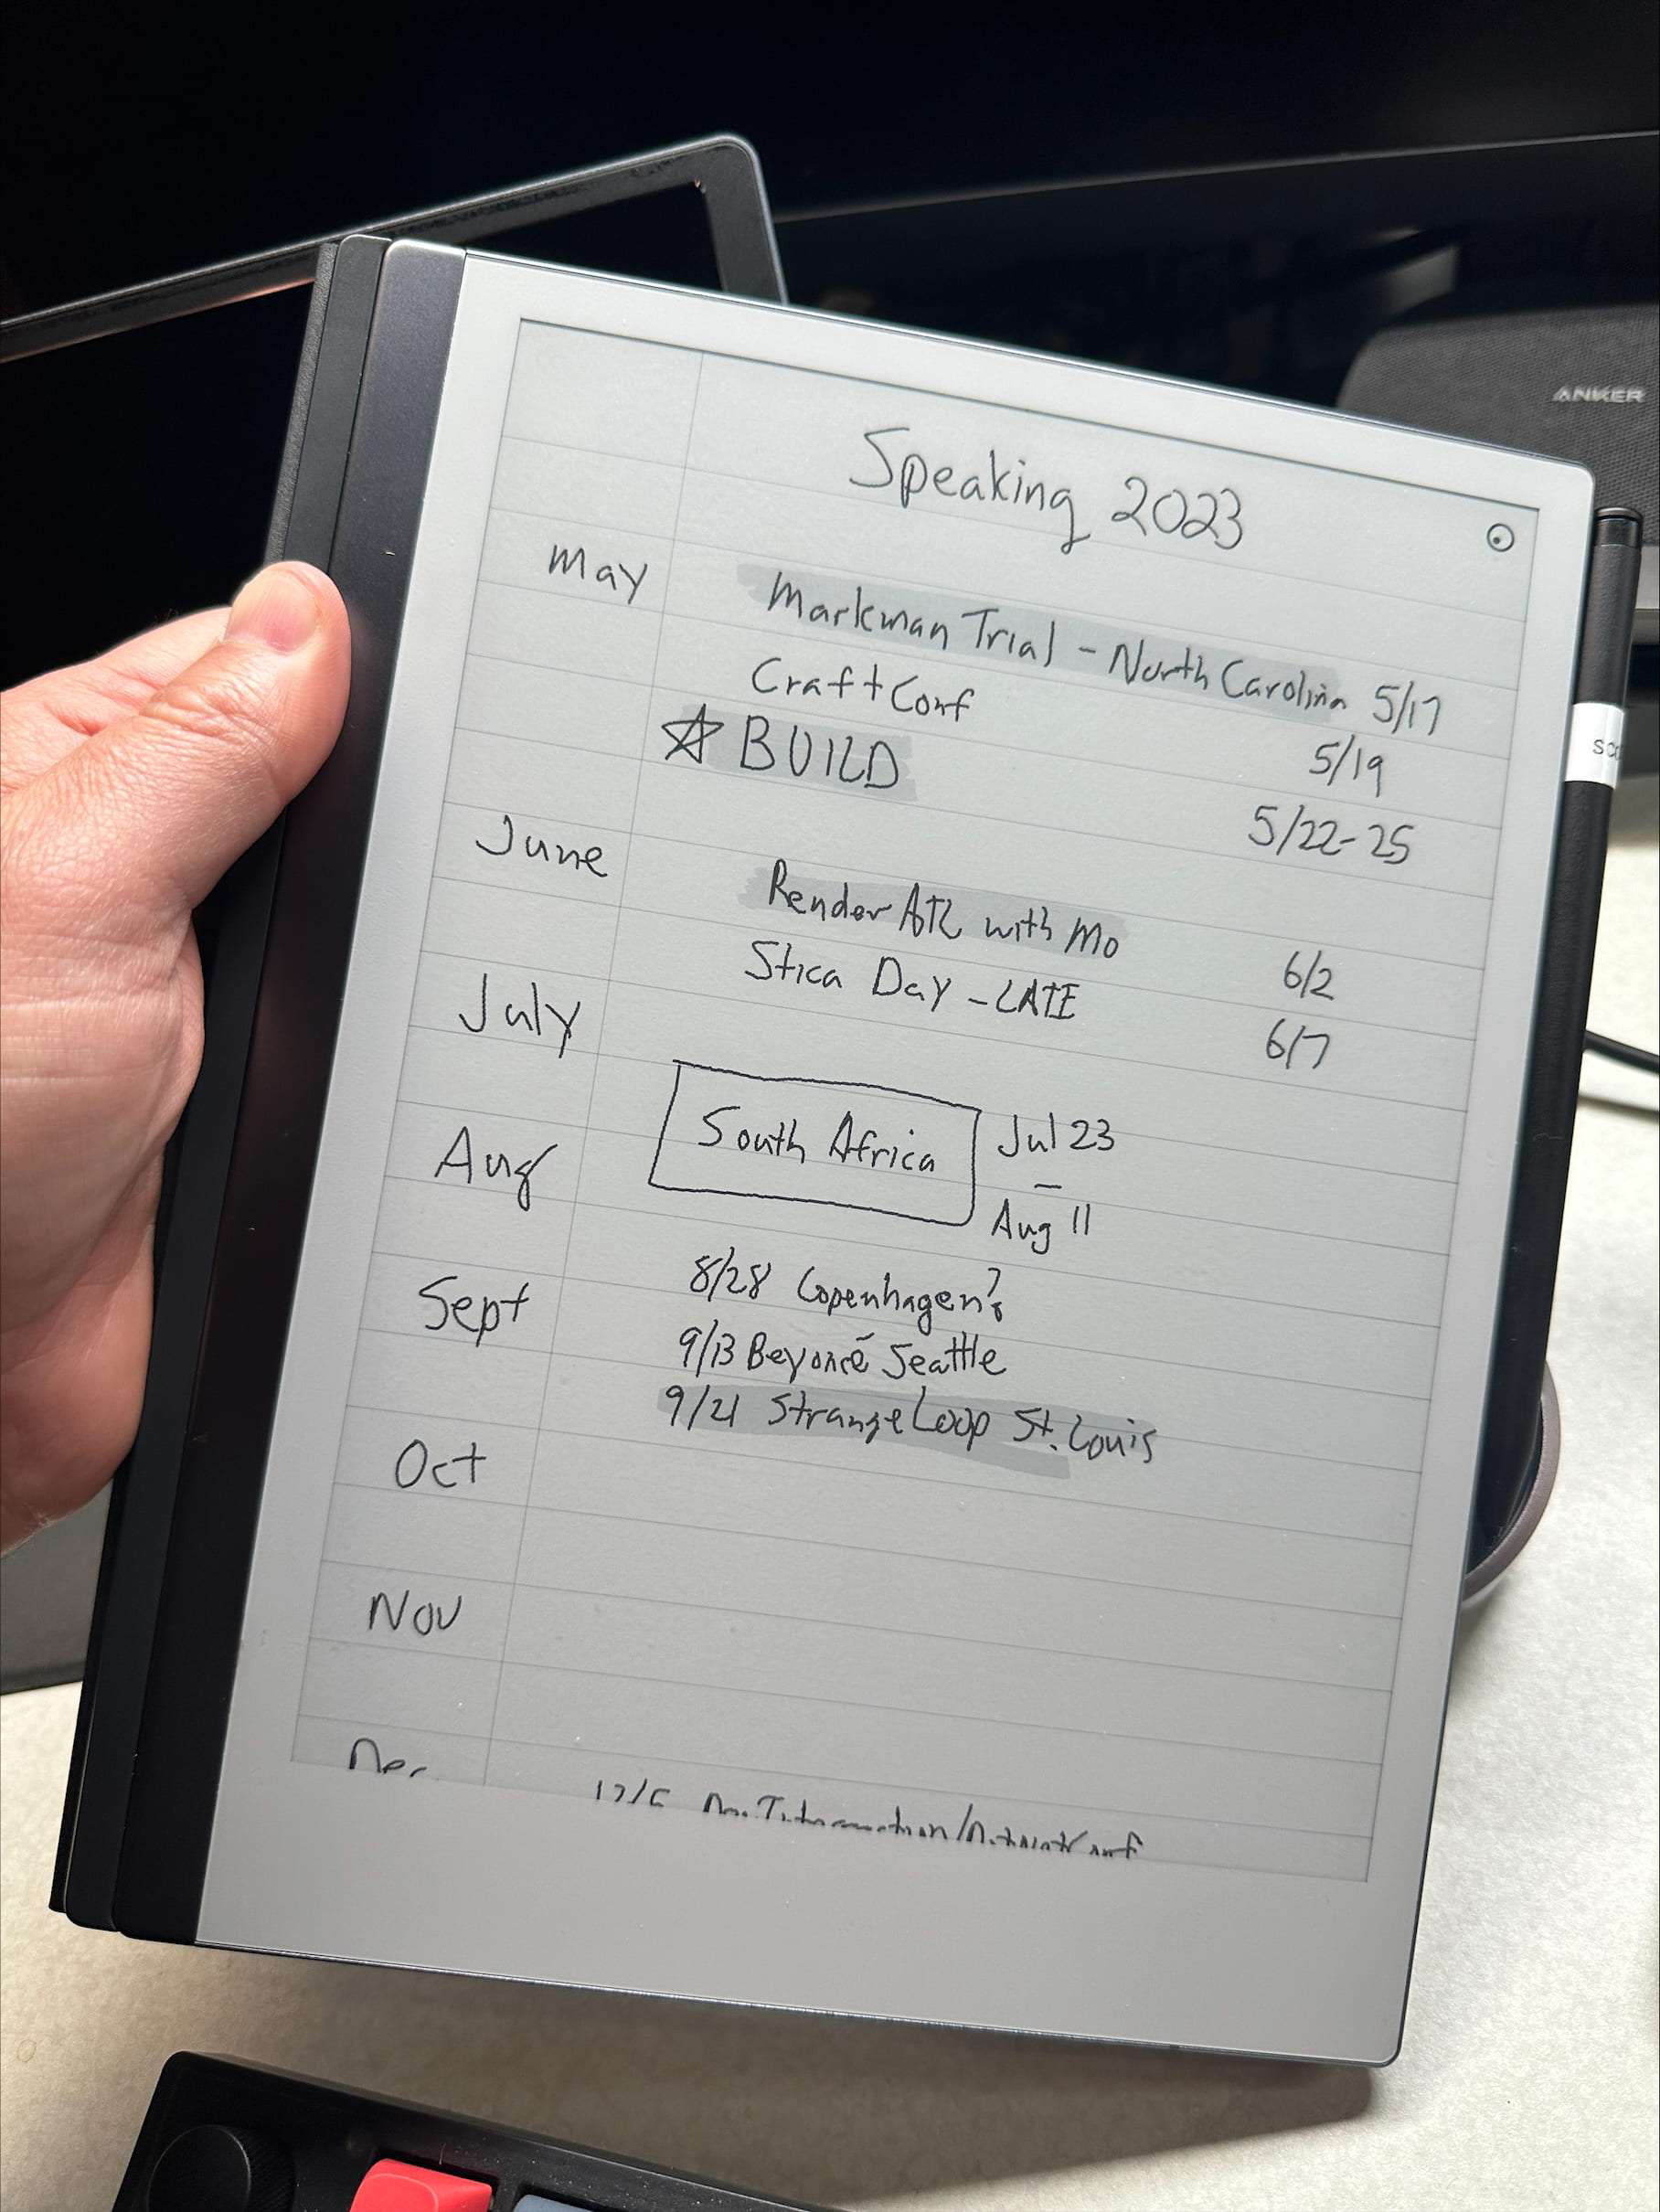 ANKER
Speaking 2023
May
Markman Trial - North Carolina 5/17
CraftConf 5/19
BUILD 5/22-25
June
Render ATL with Mo 6/2
Stica Day - LATE 6/7
July
South Africa Jul 23 - Aug 11
Aug
8/28 Copenhagen?
Sept
9/13 Beyoncé Seattle
9/21 StrangeLoop St. Louis
Oct
Nov
Dec